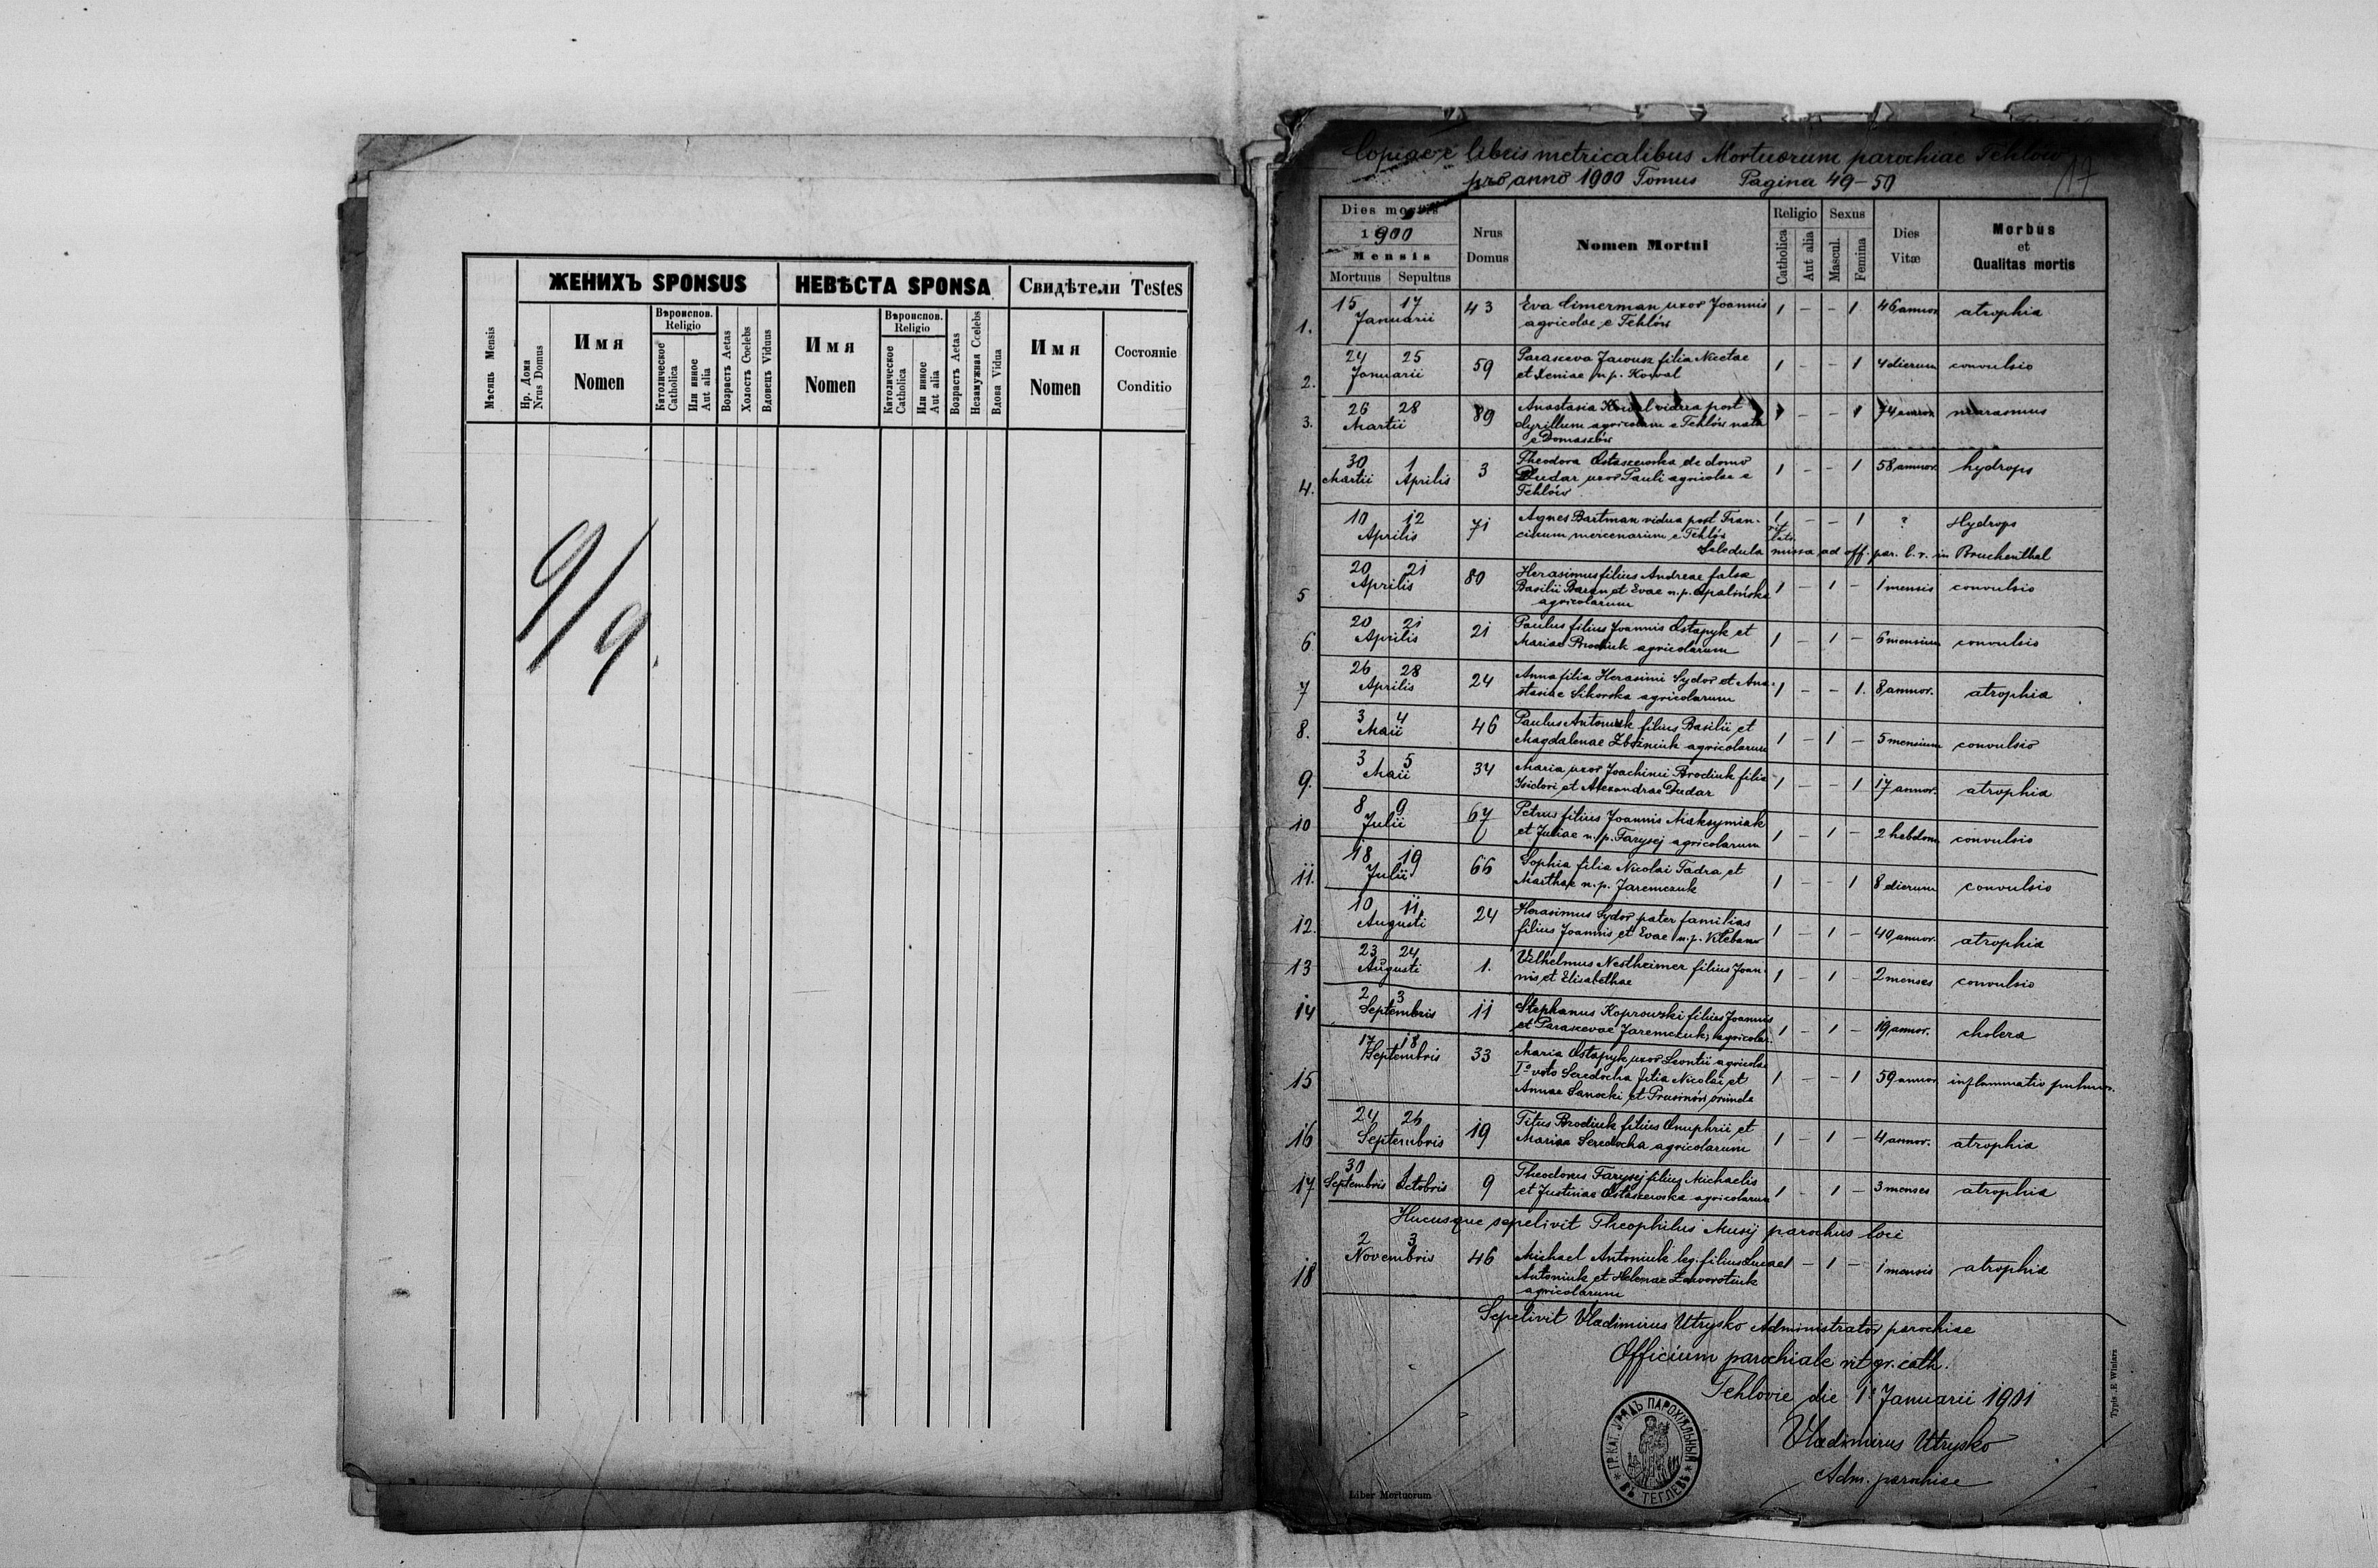 ЖЕНИХЪ SPONSUS
НЕВѢСТА SPONSA
Свидѣтели Testes
Мѣсяць Mensis
Нр. Дома
Nrus Domus
Имя
Nomen
Вѣроиспов.
Religio
Католическое
Catholica
Или инное
Aut alia
Возрастъ Aetas
Холостъ Coelebs
Вдовецъ Viduus
Имя
Nomen
Вѣроиспов.
Religio
Католическое
Catholica
Или инное
Aut alia
Возрастъ Aetas
Незамужная Coelebs
Вдова Vidua
Имя
Nomen
Состояніе
Conditio
9/9.
Copiae e libris metricalibus Mortuorum parochiae Tehlów
pro anno 1900 Tomus Pagina 49-50
17
Dies mortis
1900
Mensis
Mortuus Sepultus
Nrus
Domus
Nomen Mortui
Religio
Catholica
Aut alia
Sexus
Mascul.
Femina
Dies
Vitæ
Morbus
et
Qualitas mortis
1. 15 17 Januarii 43 Eva Cimerman uxor Joannis 1 - - 1 46 annor. atrophia
agricolae e Tehlów
2. 24 25 Januarii 59 Parasceva Jawusz filia Nicetae 1 - - 1 4 dierum convulsio
et Xeniae n.p. Kowal
3. 26 28 Martii 89 Anastasia Kowal vidua post 1 - - 1 74 annor. marasmus
Cyrillum agricolam e Tehlów nata
e Domaszów
4. 30 Martii 1 Aprilis 3 Theodora Ostaszewska de domo 1 - - 1 58 annor. hydrops
Dudar uxor Pauli agricolae e
Tehlów
10 12 Aprilis 71 Agnes Bartman vidua post Fran- 1 - - 1 ? Hydrops
ciscum mercenarium e Tehlów rit. lat.
Scledula missa ad off. par. l. r. in Bruckenthal
5 20 21 Aprilis 80 Herasimus filius Andreae false 1 - 1 - 1 mensis convulsio
Basilii Baran et Evae n.p. Opalińska
agricolarum
6 20 21 Aprilis 21 Paulus filius Joannis Ostapyk et 1 - 1 - 6 mensium convulsio
Mariae Brodiuk agricolarum
7 26 28 Aprilis 24 Anna filia Herasimi Sydor et Ana- 1 - - 1. 8 annor. atrophia
stasiae Sikorska agricolarum
8. 3 4 Maii 46 Paulus Antoniuk filius Basilii et 1 - 1 - 5 mensium convulsio
Magdalenae Zbożniuk agricolarum
9. 3 5 Maii 34 Maria uxor Joachimi Brodiuk filia 1 - - 1 17 annor. atrophia
Isidori et Alexandrae Dudar
10 8 9 Julii 67 Petrus filius Joannis Maksymiak 1 - 1 - 2 hebdom. convulsio
et Juliae n.p. Farysej agricolarum
11. 18 19 Julii 66 Sophia filia Nicolai Fadra et 1 - - 1 8 dierum convulsio
Marthae n.p. Jaremczuk
12. 10 11 Augusti 24 Herasimus Sydor pater familias 1 - 1 - 40 annor. atrophia
filius Joannis et Evae n.p.
13 23 24 Augusti 1. Vilhelmus Nestheimer filius Joan- 1 - 1 - 2 menses convulsio
nis et Elisabethae
14 2 3 Septembris 11 Stephanus Koprowski filius Joannis 1 - 1 - 19 annor. cholera
et Parascevae Jaremczuk agricolar.
15 17 18 Septembris 33 Maria Ostapyk uxor Leontii agricolae 1 - - 1 59 annor. inflammatio pulmon.
Iº voto Seredocha filia Nicolai et
Annae Sanocki et Prusinów oriunda
16 24 26 Septembris 19 Titus Brodiuk filius Onuphrii et 1 - 1 - 4 annor. atrophia
Mariae Seredocha agricolarum
17 30 Septembris Octobris 9 Theodorus Farysej filius Michaelis 1 - 1 - 3 menses atrophia
et Justinae Ostaszewska agricolarum
Hucusque sepelivit Theophilus Musij parochus loci
18 2 3 Novembris 46 Michael Antoniuk leg. filius Lucae 1 - 1 - 1 mensis atrophia
Antoniuk et Helenae Zaworotiuk
agricolarum
Sepelivit Vladimirus Utrysko Administrator parochiae
Officium parochiale rit. gr. cath.
Tehlovie die 1. Januarii 1901
Vladimirus Utrysko
Adm. parochiae
ГР.КАТ. УРЯДЪ ПАРОХІЯЛЬНЫЙ ВЪ ТЕГЛЕВѢ
Liber Mortuorum
Typis. E Winiarz